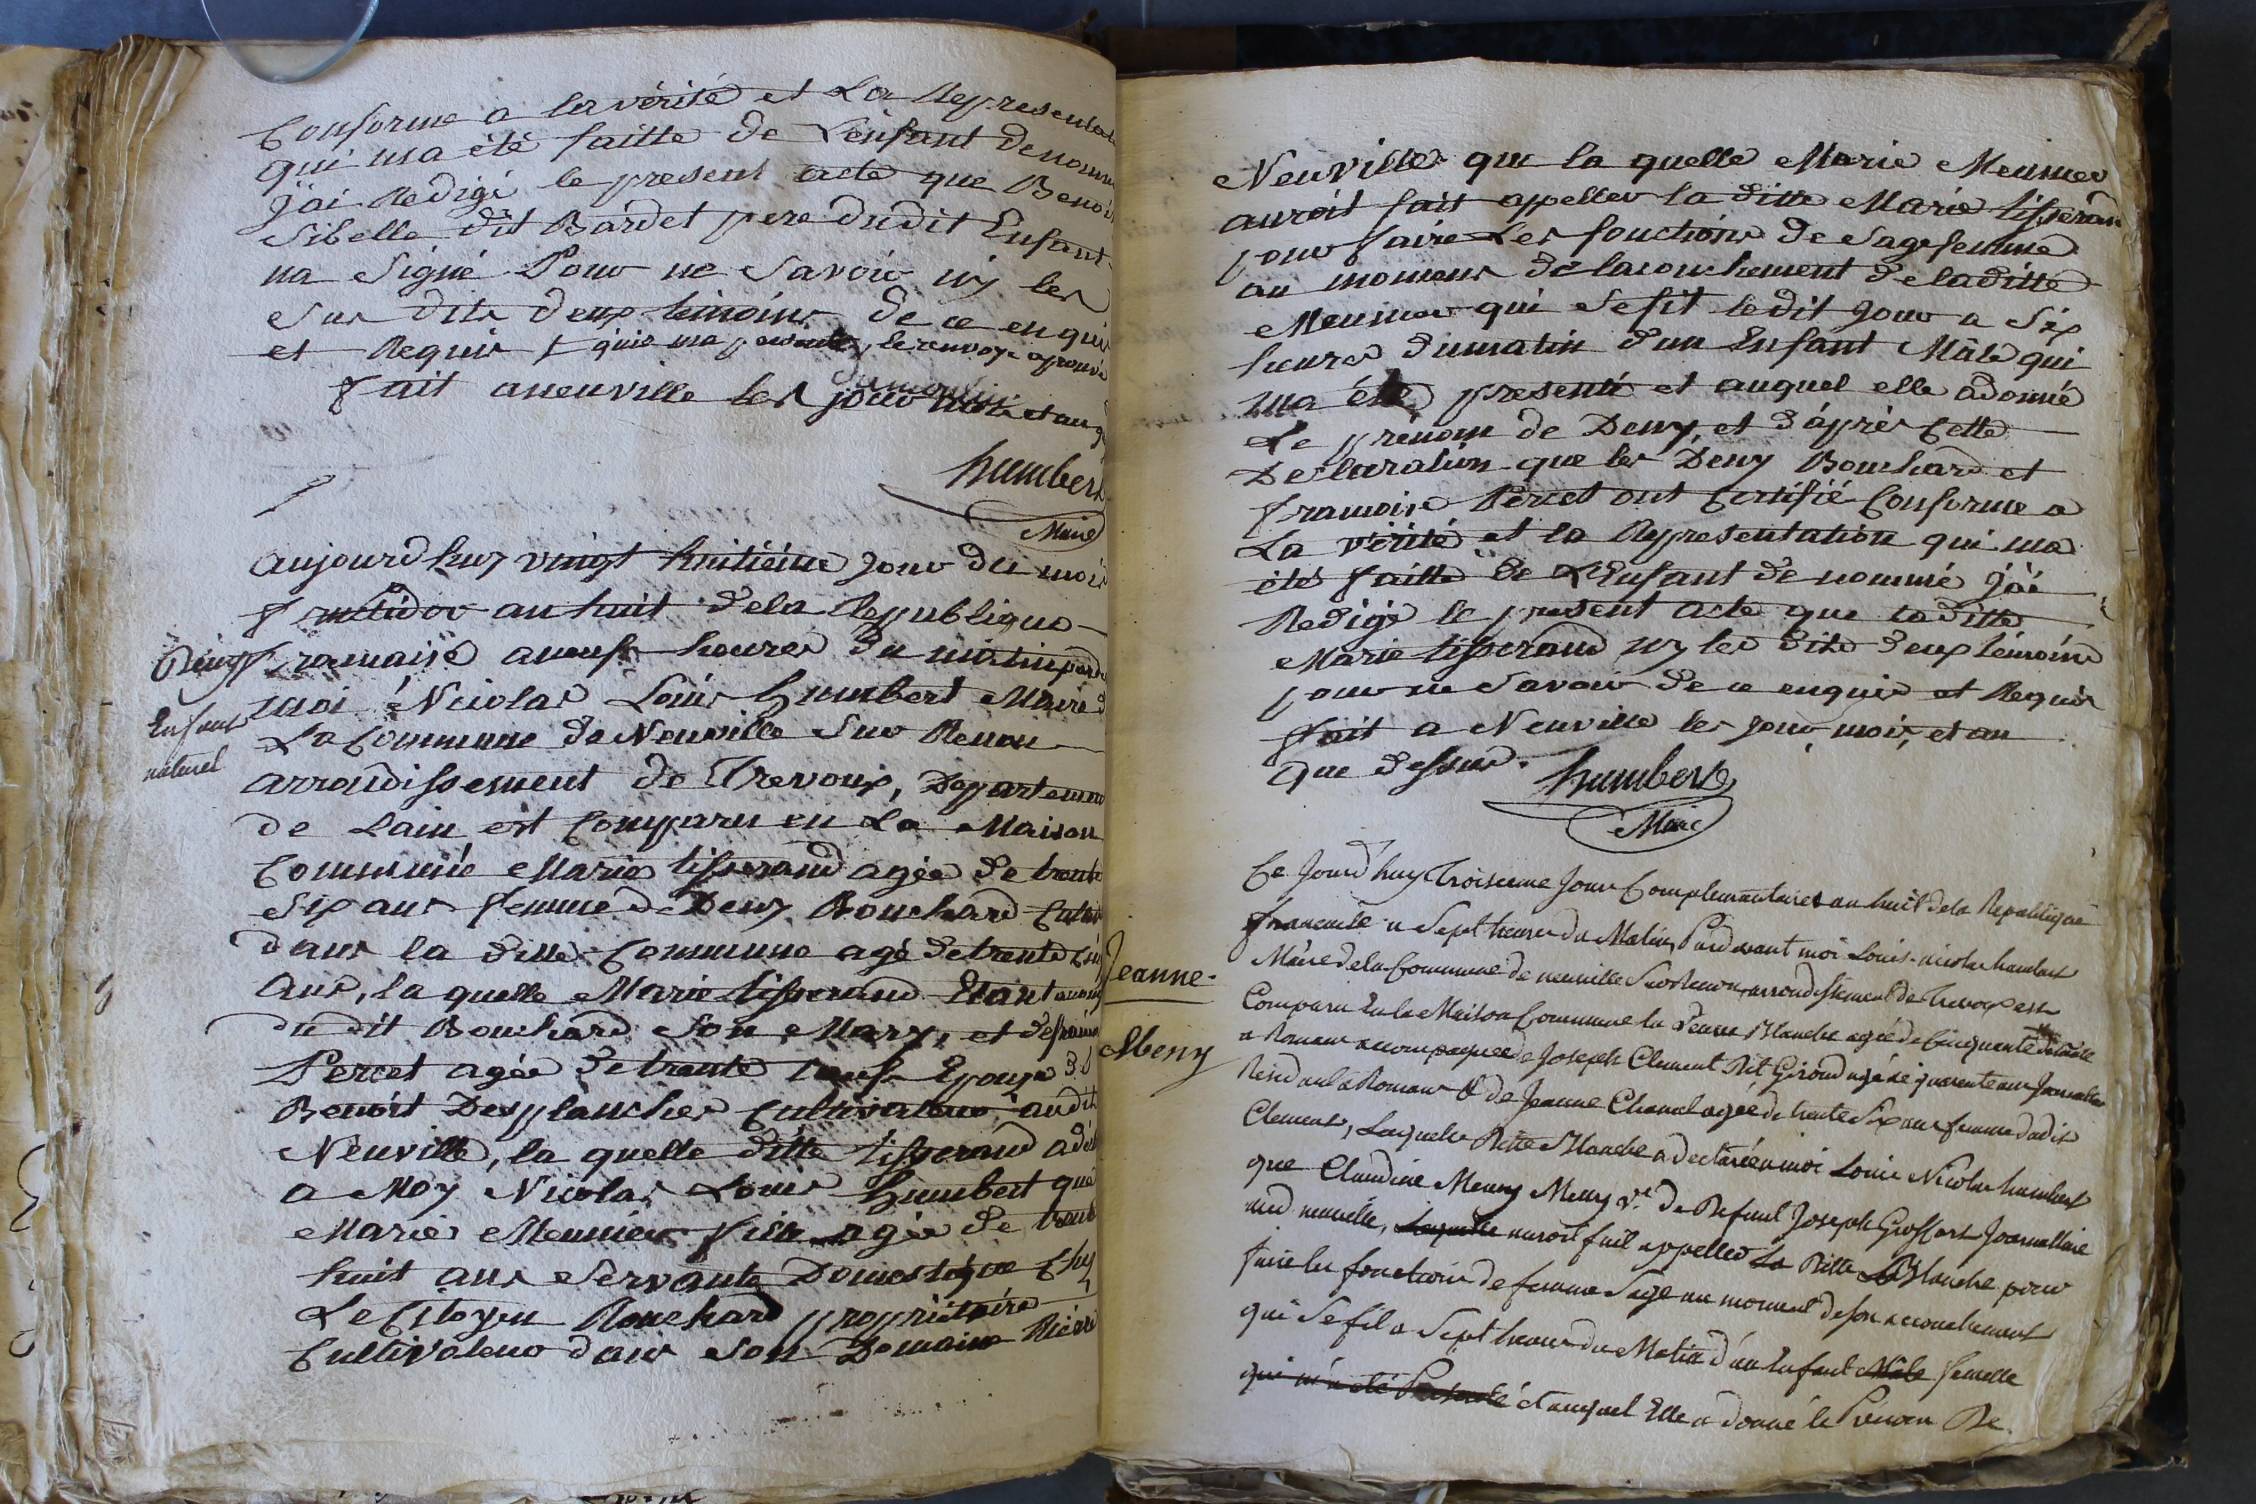 Conforme a la vérité et La Representa
qui ma été faitte de L'enfant denomm
j'ai Redigé le present acte que Benoi
Sibelle dit Bardet pere dudit Enfant
na Signé Pour ne Savoir ny les
Sus dits deux temoins de ce enquis
et Requis le renvoye aprouvé
fait aneuville les jour mois et an q
humbert
Maire
aujourdhuy vingt huitiéme jour du mois
fructidor an huit dela Republique
francaise a neuf heures du matin pard
moi Nicolas Louis humbert Maire d
La Commune de Neuville Sur Renon
Enfant
naturel
arrondissement de Trevoux, Departemen
de Lain est Comparu en La Maison
Commune Marie tisserand agée de trente
Six ans femme de Deny Bouchard Cultiv
dans la ditte Commune agé de trente Cin
ans, la quelle Marie tisserand Etant
du dit Bouchard Son Mary, et de
Percet agée de trente neuf Epouse d
Benoit Desplanches Cultivateur audit
Neuville, la quelle ditte tisserand a dé
a Moy Nicolas Louis humbert que
Marie Meunier fille agée de trente
huit ans Servante Domestique Chez
Le Citoyen Bouchard proprietaire
Cultivateur dans Son Domaine Riere
Neuville que la quelle Marie Meunier
auroit fait appeller la ditte Marie tisseran
pour faire Les fonctions de Sagefemme
au moment de lacouchement de laditte
Meunier qui Se fit ledit jour a Six
heures dumatin d'un Enfant Mâle qui
ma été presenté et auquel elle a donné
Le prénom de Deny, et d'après Cette
Declaration que les Deny Bouchard et
francoise Percet ont Certifié Conforme a
La vérité et la Representation qui ma
été faitte de L'Enfant de nommé j'ai
Redigé le present acte que laditte
Marie tisserand ny les dits deux témoins
pour ne Savoir de ce enquis et Requis
fait a Neuville les jour mois, et an
que dessus.
humbert
Maire
Jeanne
Ce Jourd'huy Troisieme Jour Complementaire an huit dela Republique
francaise a Sept heures du Matin Pardevant moi Louis nicolas humbert
Maire dela Commune de neuville Sur Renon arrondissement de Trevoux est
Comparu En la Maison Commune la Blanche agée de Cinquante
a Romans accompagnée de Joseph Clement Dit Giroud agé de quarente ans Journallier
Residant a Romans & de Jeanne Chanel agée de trente Six ans femme dudit
Clement, Laquelle Ditte Blanche a declaré a moi Louis Nicolas humbert
que Claudine Meury Meury Ve. de Defunt Joseph Journalliere
Laquelle auroit fait appeller La Ditte La Blanche pour
faire les fonctions de femme Sage au moment de Son accouchement
qui Se fit a Sept heures du Matin d'un Enfant Mâle femelle
qui m'a été Presenté et auquel Elle a donné le Prénom De